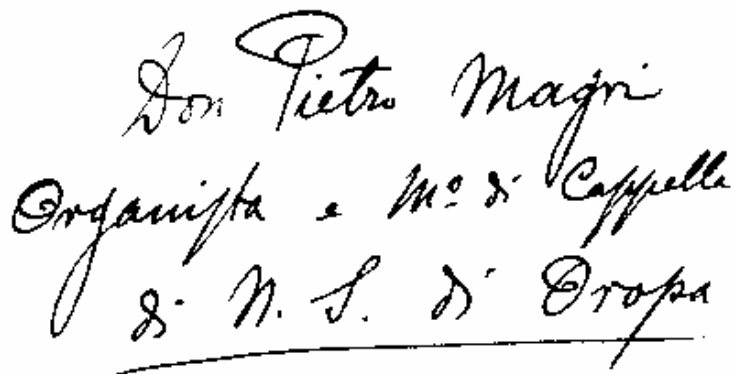 Don Pietro Magri
Organista e Mº di Cappella
di N. S. di Oropa